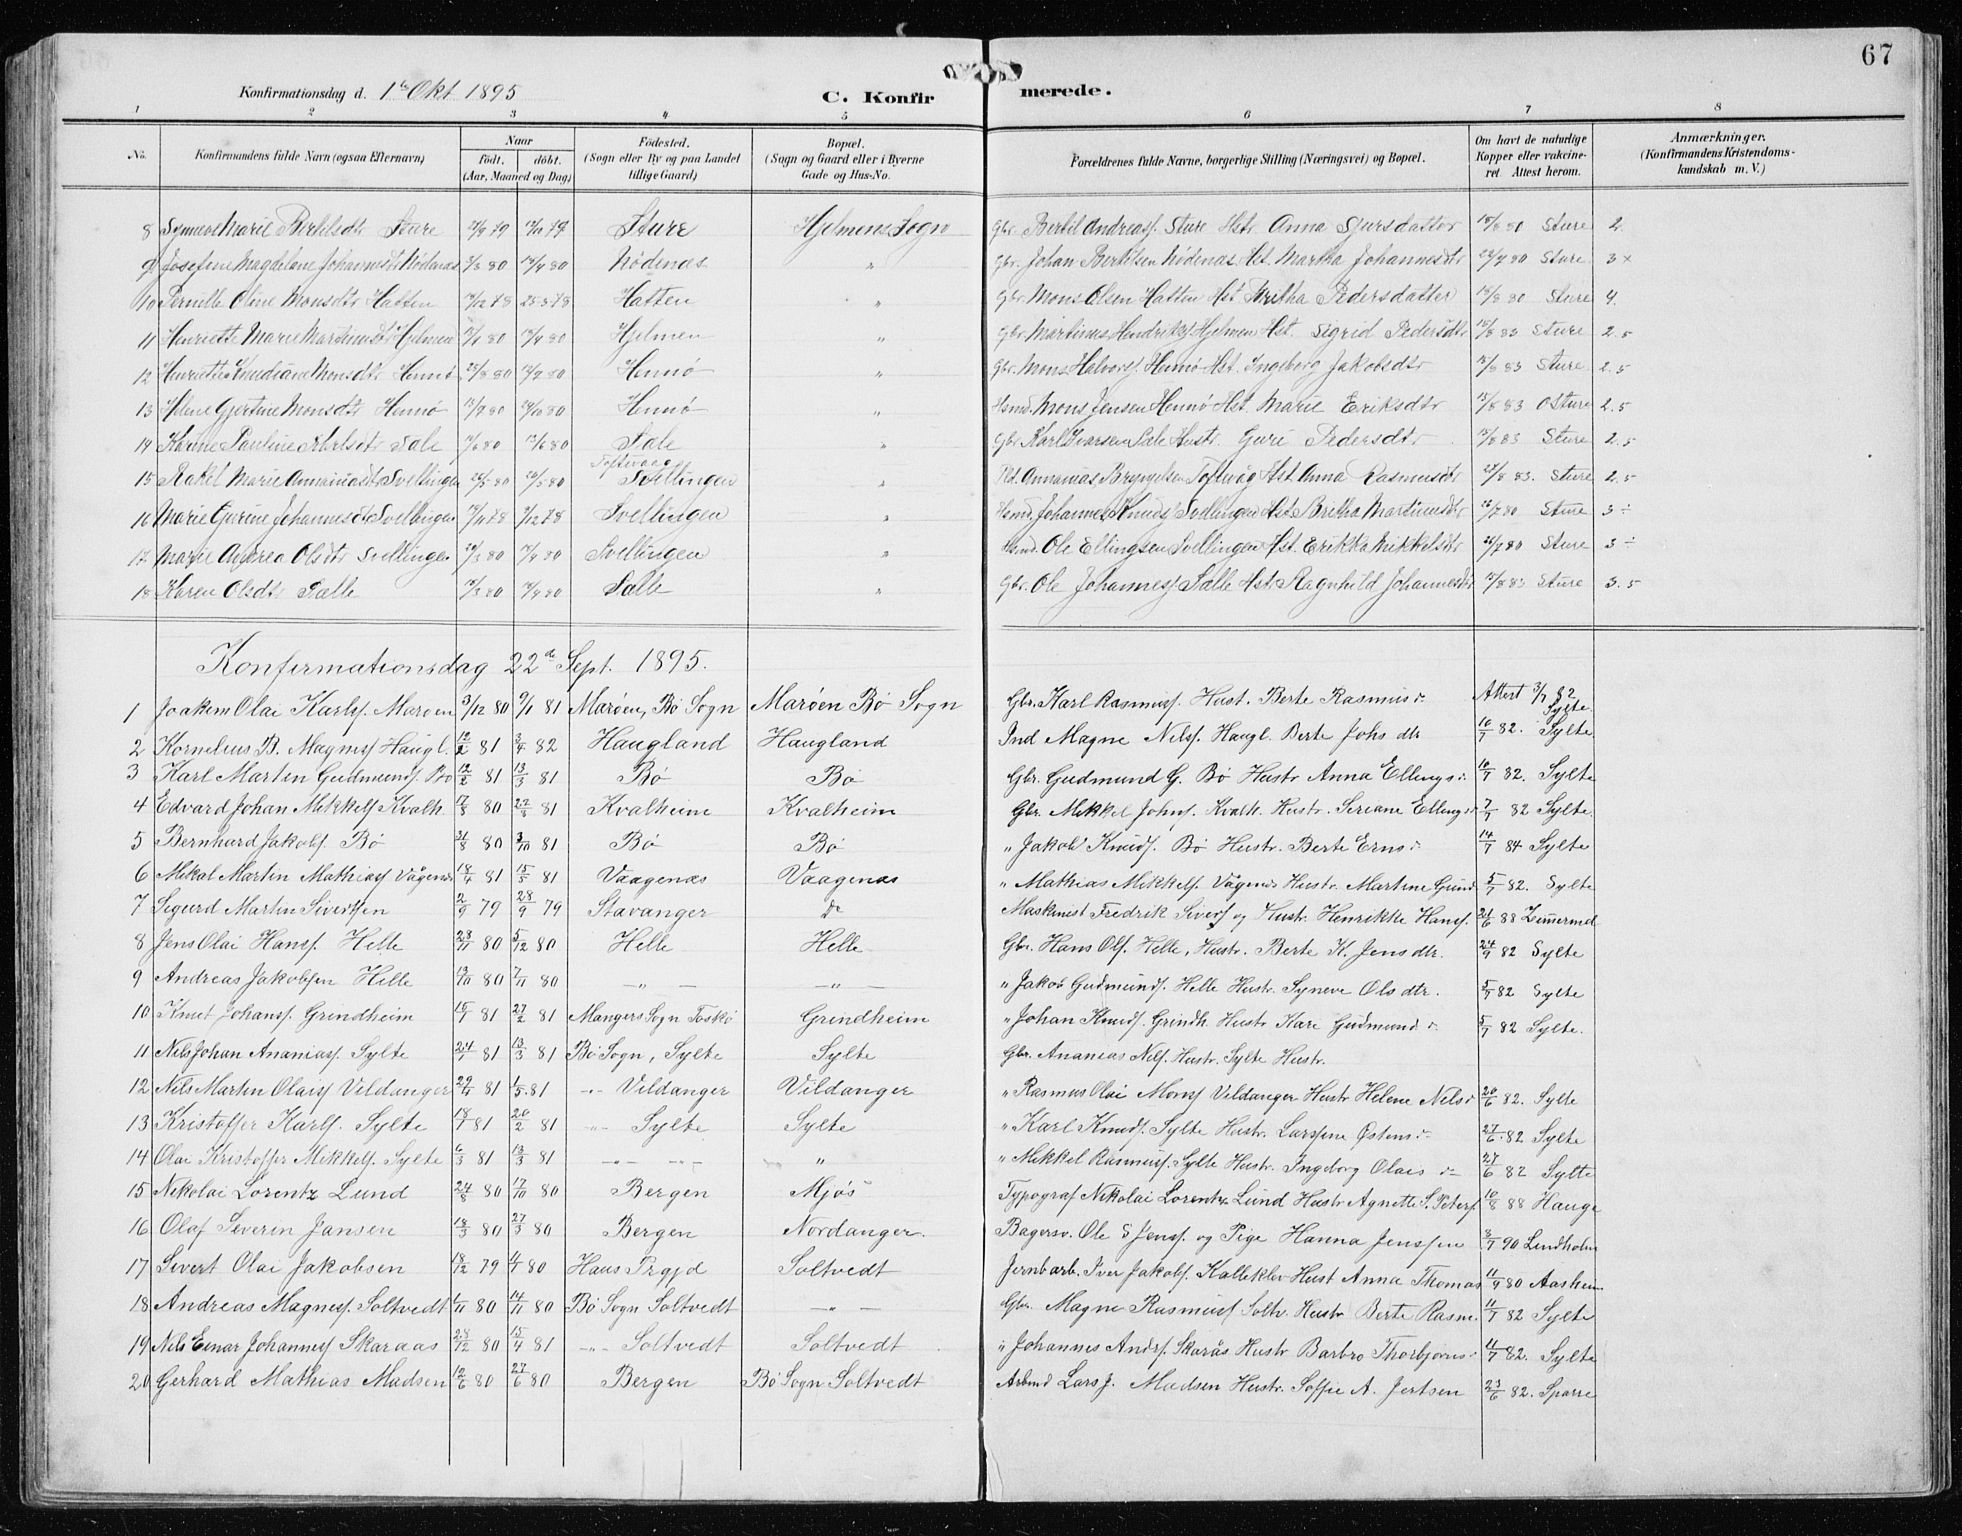 67
Konfirmationsdag d. 1te Okt 1895
C. Konfirmerede.
1 2 3 4 5 6 7 8
No. Konfirmandens fulde Navn (ogsaa Efternavn) Naar født. døbt. (Aar, Maaned og Dag) Fødested. (Sogn eller By og paa Landet tillige Gaard) Bopæl. (Sogn og Gaard eller i Byerne Gade og Hus-No. Forældrenes fulde Navne, borgerlige Stilling (Næringsvei) og Bopæl. Om havt de naturlige Kopper eller vakcineret Attest herom. Anmærkninger. (Konfirmandens Kristendomskundskab m. V.)
8 Synneve Marie Bertelsdtr Sture Sture Hjelmens Sogn Gbr. Bertil Andreass. Sture Hstr Anna Sjursdatter 18/8 80 Sture 2
9 Josefine Magdelane Johannesdtr Nödenæs 80 Nödenæs " Gbr. Johan Bertilsen Nødenæs Hst. Martha Johannesdtr 80 Sture 3 ×
10 Pernille Oline Monsdtr Hatten 78 Hatten " Gbr Mons Olsen Hatten Hst Britha Pedersdatter 18/8 80 Sture 4.
11 Henriette Marie Martinusdtr Hjelmen 80 80 Hjelmen " Gbr Martinus Hendriks Hjelmen Hst. Sigrid Pedersdtr 18/8 83 Sture 2.5
12 Henriette Knudiane Monsdtr Hennø 80 80 Hennø " Gbr. Mons Halvors. Hennø Hst. Ingeborg Jakobsdtr 83 Sture 2.5
13 Helene Gjertine Monsdtr Hennø 80 80 Hennø " Hsmd. Mons Jensen Hennø Hst. Marie Eriksdtr 83 Sture 2.5
14 Karine Pauline Karlsdtr Sale 80 80 Sale " Gbr Karl Ivarsen Sale Hustr. Guri Pedersdtr 83 Sture 2.5
15 Rakel Marie Annaniasdtr Svellingen 80 80 Toftevaag Svellingen " Annanias Brynjelsen Toftevåg Hst Anna Rasmusdtr 83. Sture 2.5
16 Marie Gurine Johannesdtr Svellingen 78 78 Svellingen " Hsmd. Johannes Knuds Svellingen Hst. Britha Martinusdtr 80 Sture 3 ÷
17 Marie Andrea Olsdtr Svellingen 80 80 Svellingen " Hsmd. Ole Ellingsen Svellingen Hst. Erikka Mikkelsdtr 80 Sture 3 ÷
18 Karen Olsdtr Sælle 80 80 Salle " Gbr. Ole Johanness Salle Hst Ragnhild Johannesdtr 83 Sture 3.5
Konfirmationsdag 22de Sept. 1895.
1 Joakim Olai Karls. Marøen 3/12 80 9/1 81 Marøen, Bø Sogn Marøen Bø Sogn Gbr. Karl Rasmuss. Hust. Berte Rasmus Attest 3/7 82 Sylte
2 Kornelius B. Magnes Haugl. 12/2 81 3/4 82 Haugland Haugland Ind Magne Nils. Haugl. Berte Johs dtr 10/7 82. Sylte
3 Karl Martin Gudmunds. Bø 12/2 81 13/3 81 Bø Bø Gbr. Gudmund G. Bø Hustr Anna Ellings 10/7 82. Sylte
4 Edvard Johan Mikkels Kvalh. 80 81 Kvalheim Kvalheim Gbr. Mikkel Johns. Kvalh. Hustr. Seriane Ellings 7/7 82 Sylte.
5 Bernhard Jakobs. Bø 31/8 80 3/10 81 Bø Bø " Jakob Knuds. Bø Hustr. Berte Erns 14/7 84 Sylte
6 Mikal Martin Mathias Vågenæs 18/4 81 15/5 81 Vaagenæs Vaagenæs " Mathias Mikkels. Vågenæs Hustr. Martine Gund 5/7 82. Sylte
7 Sigurd Martin Sivertsen 2/9 79 28/9 79 Stavanger do Maskinist Fredrik Sivers og Hustr. Henrikke Hans. 21/6 88
8 Jens Olai Hans. Helle 23/11 80 5/12 80 Helle Helle Gbr. Hans Ols. Helle, Hustr. Berte K. Jens dtr. 24/9 82 Sylte
9 Andreas Jakobsen Helle 80 7/11 80 — " — — " — " Jakob Gudmunds. Helle Hustr. Syneve Ols dtr. 5/7 82 Sylte
10 Knut Johans. Grindheim 15/1 81 27/2 81 Mangers Sogn Toskø Grindheim " Johan Knuds. Grindh. Hustr Kari Gudmund 5/7 82 Sylte.
11 Nils Johan Ananias. Sylte 24/1 81 13/3 81 Bø Sogn, Sylte Sylte Gbr. Ananias Nils. Hustr. Sylte Hustr.
12 Nils Martin Olais Vildanger 29/4 81 1/5 81 — " — Vildanger Vildanger " Rasmus Olai Mons Vildanger Hustr Helene Nils 20/6 82. Sylte
13 Kristoffer Karls. Sylte 18/1 81 20/2 81 — " — Sylte Sylte " Karl Knuds. Sylte Hustr. Larssine Østens 27/6 82 Sylte
14 Olai Kristoffer Mikkels. Sylte 6/3 81 13/3 81 — " — — " — " " Mikkel Rasmus. Sylte Hustr. Ingeborg Olais 27/6 82 Sylte
15 Nikolai Lorentz Lund 24/8 80 17/10 80 Bergen Mjøs Typograf Nikolai Lorentz Lund Hustr Agnette S. Peters 10/8 88 Hauge
16 Olaf Severin Jansen 18/3 80 27/3 80 Bergen Nordanger. Bagersv. Ole S Jens. og Pige Hanna Jenssen 3/7 90 Lindholm
17 Sivert Olai Jakobsen 18/12 79 4/1 80 Haus Prgjd Soltvedt Jernbarb. Iver Jakobs. Kalleklev Hust Anna Thomas 11/9 80 Aasheim
18 Andreas Magness. Soltvedt 1/11 80 14/11 80 Bø Sogn Soltvedt — " — Gbr. Magne Rasmus Soltv. Hustr Berte Rasm. 11/7 82 Sylte
19 Nils Einar Johannes Skaraas 28/12 80 15/4 81 — " — Soltvedt Soltvedt " Johannes Andrs. Skarås Hustr Barbro Thorbjørns 11/7 82. Sylte
20 Gerhard Mathias Madsen 12/6 80 27/6 80 Bergen Bø Sogn Soltvedt Arbmd Lars J. Madsen Hustr. Soffie A. Jertsen 23/6 82. Sparre